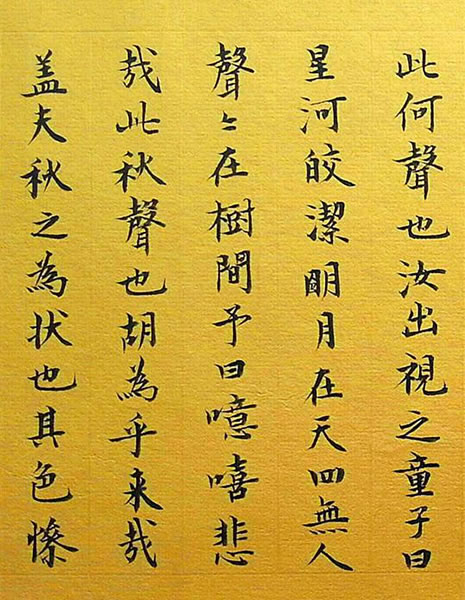 此何聲也汝出視之童子曰
星河皎潔明月在天四無人
聲〻在樹間予曰噫嘻悲
哉此秋聲也胡為乎来哉
盖夫秋之為状也其色慘